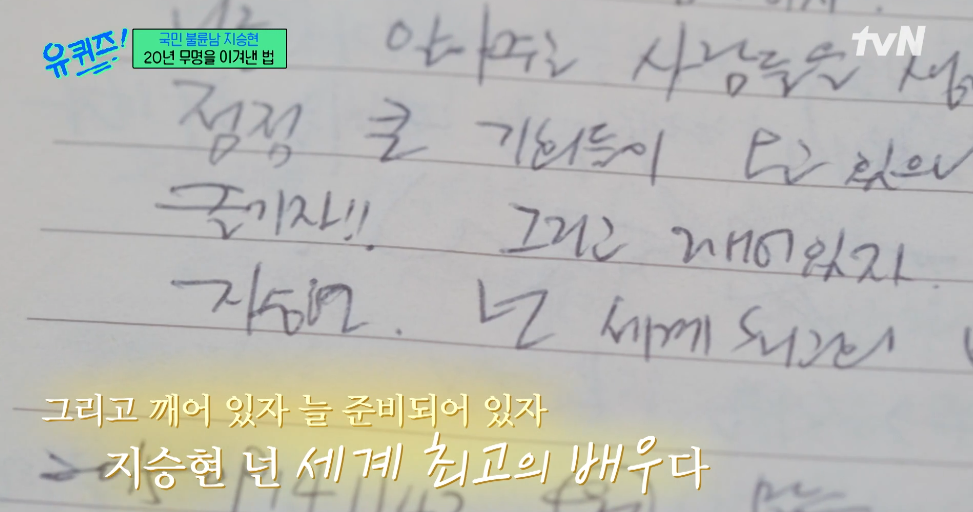 유퀴즈!
국민 불륜남 지승현
20년 무명을 이겨낸 법
tvN
아껴주는 사람들을
점점 큰 기회들이 오고 있으니
즐기자!! 그리고 깨어있자.
지승현. 넌 세계 최고의
그리고 깨어 있자 늘 준비되어 있자
지승현 넌 세계 최고의 배우다